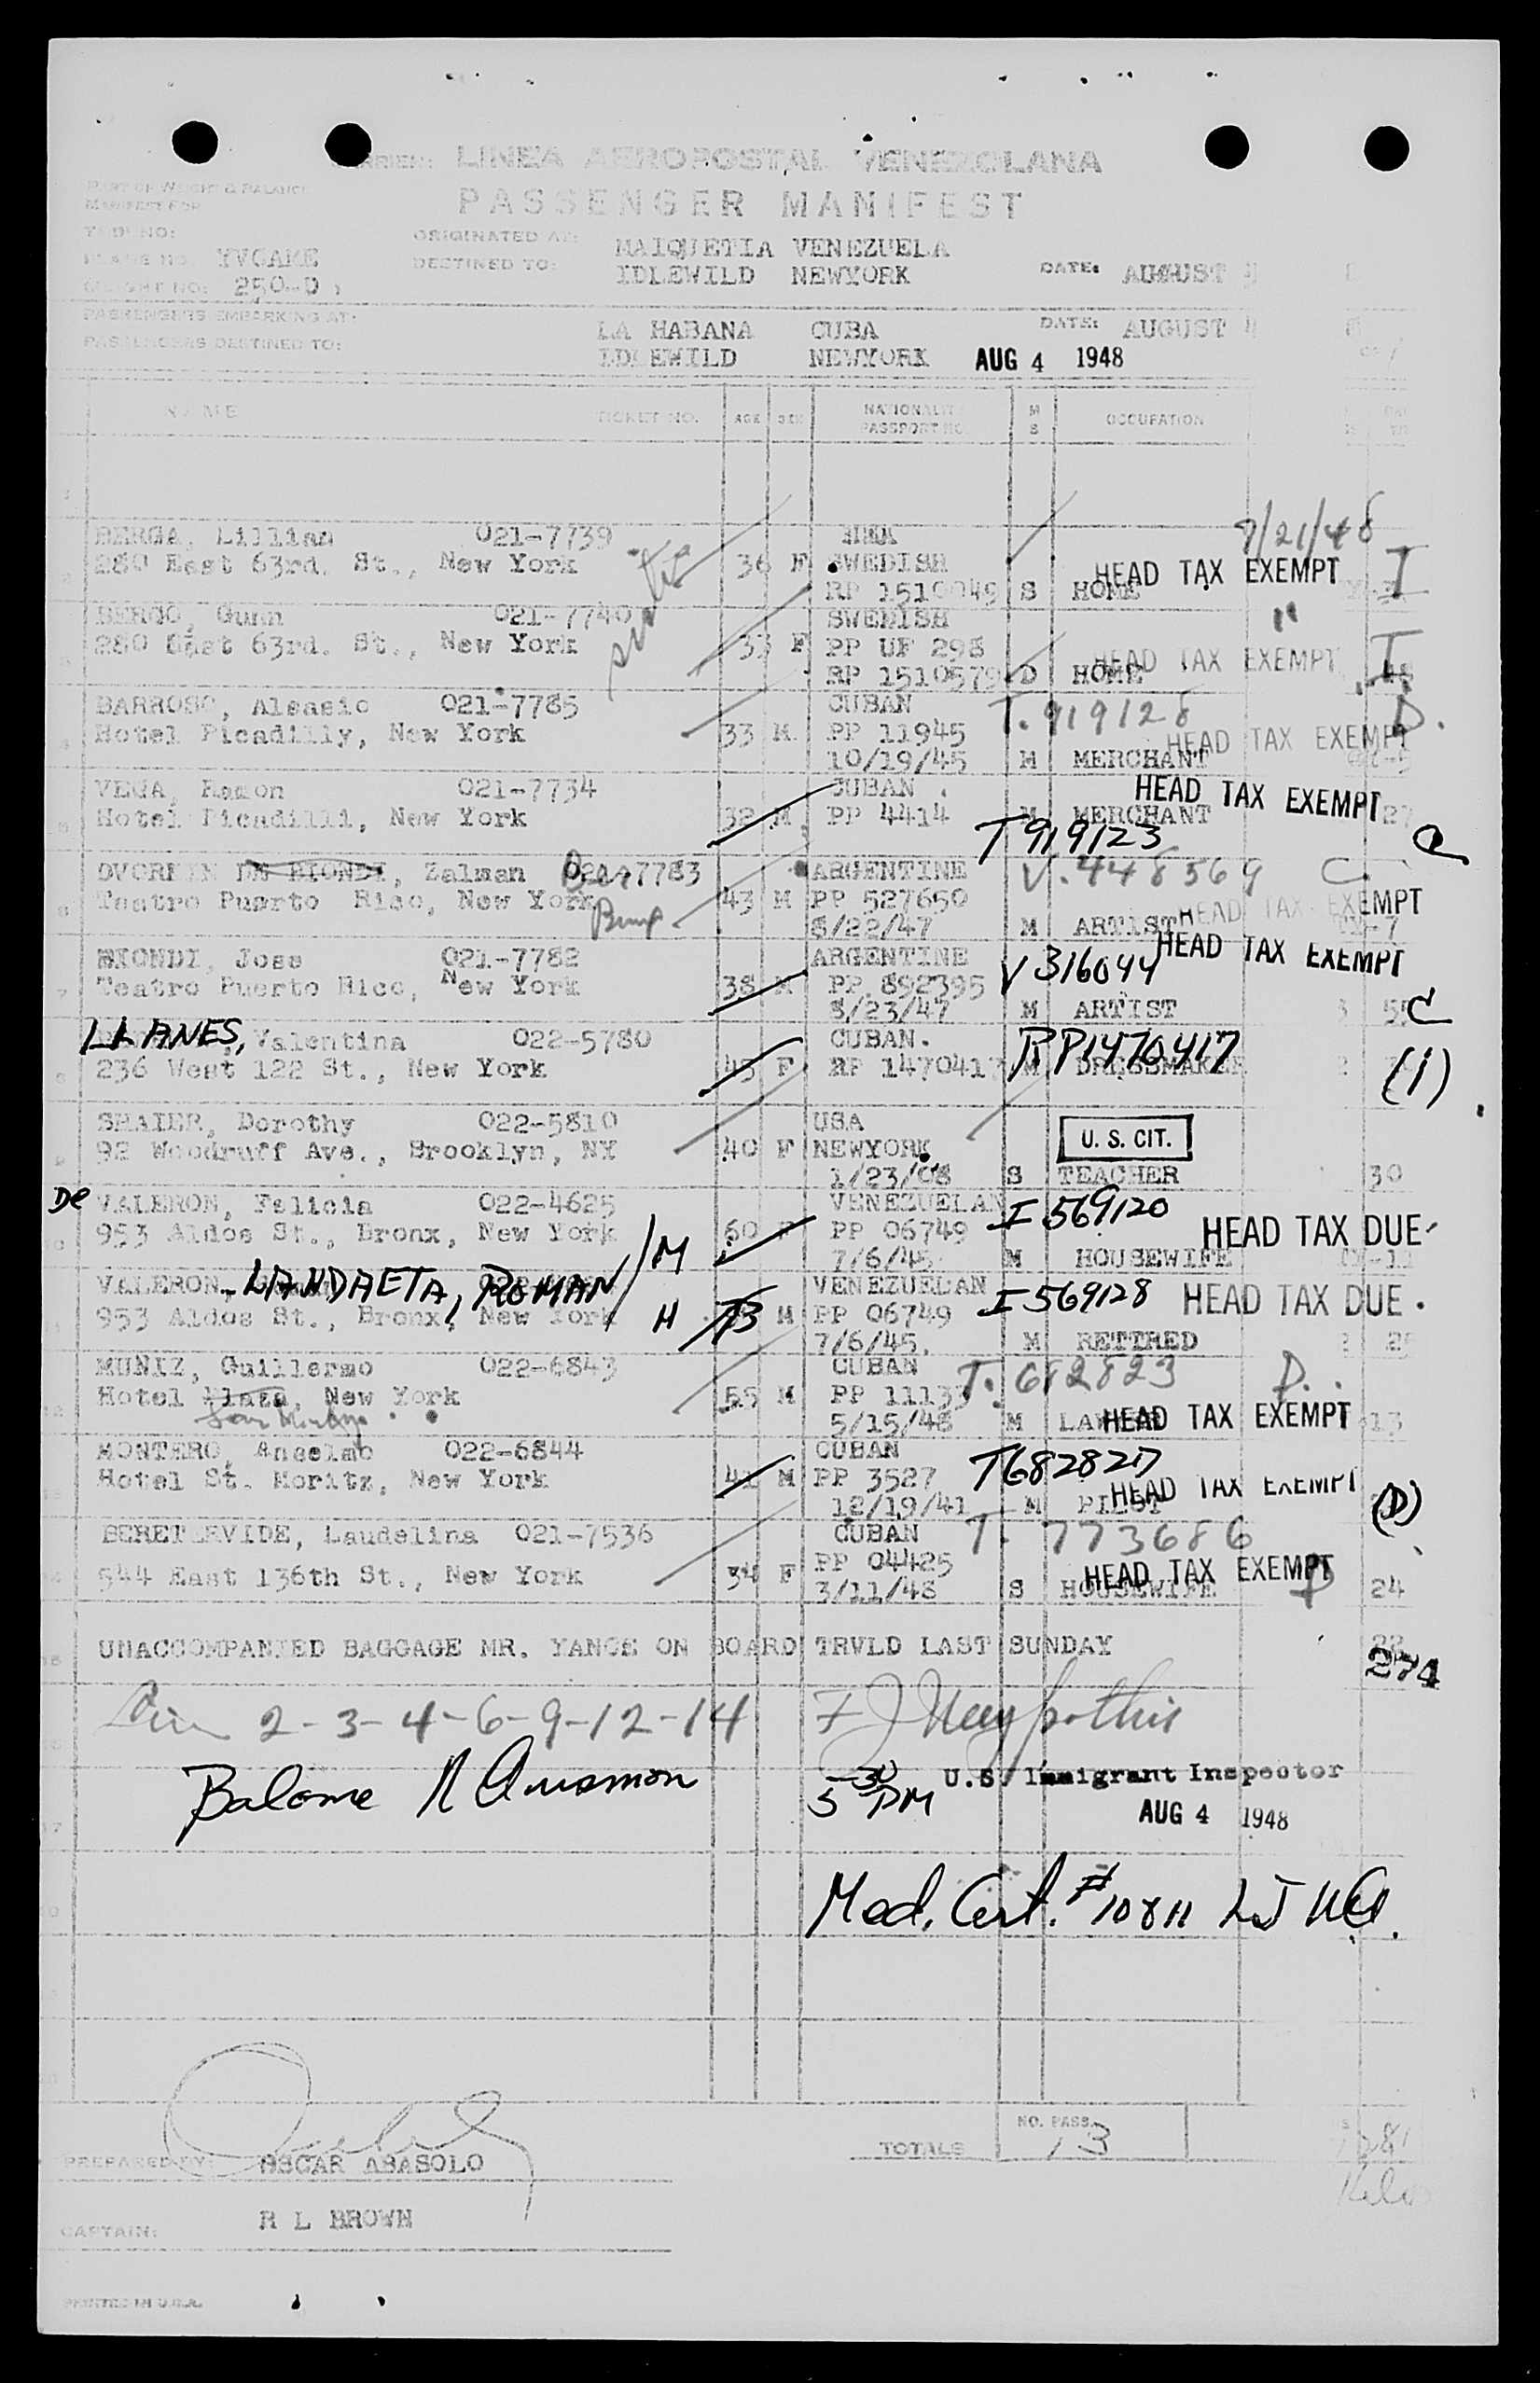 LINEA AEROPOSTAL VENEZOLANA
PART OF WEIGHT & BALANCE
MANIFEST FOR
PASSENGER MANIFEST
ORIGINATED AT: MAIQUETIA VENEZUELA
YVCAME DESTINED TO: IDLEWILD NEWYORK DATE: AUGUST
250-D
PASSENGERS EMBARKING AT: LA HABANA CUBA DATE: AUGUST 4
PASSENGERS DESTINED TO: NEWYORK AUG 4 1948
NAME TICKET NO. AGE SEX NATIONALITY PASSPORT NO. M S OCCUPATION
7/21/48
BERGA, Lillian 021-7739
280 East 63rd. St., New York 36 F SWEDISH HEAD TAX EXEMPT I
RP 1510049 S HOME
BERGO, Gunn 021-7740 SWEDISH "
280 East 63rd. St., New York 33 F PP UF 298 HEAD TAX EXEMPT I
RP 1510579 D HOME
BARROSO, 021-7785 CUBAN T. 919128 D.
Hotel Picadilly, New York 33 M PP 11945 HEAD TAX EXEMPT
10/19/45 M MERCHANT
VEGA, Ramon 021-7734 CUBAN HEAD TAX EXEMPT
Hotel Picadilli, New York 32 M PP 4414 M MERCHANT 27
T 919123
Zalman 7783 ARGENTINE V. 448569 C.
Teatro Puerto Rico, New York 43 M PP 527650 HEAD TAX EXEMPT
8/22/47 M ARTIST
BIONDI, Jose 021-7782 ARGENTINE V 316044 HEAD TAX EXEMPT
Teatro Puerto Rico, New York 38 M PP 892395
8/23/47 M ARTIST
LLANES, Valentina 022-5780 CUBAN. RP1470417
236 West 122 St., New York 43 F RP 1470417 M DRESSMAKER (1)
SHAIER, Dorothy 022-5810 USA U. S. CIT.
92 Woodruff Ave., Brooklyn, NY 40 F NEWYORK
1/23/08 S TEACHER 30
De VALERON, Felicia 022-4625 VENEZUELAN I 569120
953 Aldos St., Bronx, New York /M 60 F PP 06749 HEAD TAX DUE
7/6/45 M HOUSEWIFE
VALERON, -LANDAETA, ROMAN/ VENEZUELAN I 569128 HEAD TAX DUE.
953 Aldos St., Bronx, New York M 73 M PP 06749
7/6/45. M RETIRED
MUNIZ, Guillermo 022-6843 CUBAN T. 682823 D.
Hotel Plaza, New York 55 M PP 11133
5/15/48 M HEAD TAX EXEMPT 13
MONTERO, Anselmo 022-6844 CUBAN T682827
Hotel St. Moritz, New York 41 M PP 3527 HEAD TAX EXEMPT (D)
12/19/41 M PILOT
Laudelina 021-7536 CUBAN T. 773686
544 East 136th St., New York 34 F PP 04425 HEAD TAX EXEMPT D
3/11/48 S HOUSEWIFE 24
UNACCOMPANIED BAGGAGE MR. YANGE ON BOARD TRVLD LAST SUNDAY
274
2-3-4-6-9-12-14
5 30 PM U.S. Immigrant Inspector
AUG 4 1948
Med. Cert. #10811
TOTALS NO. PASS. 13
PREPARED BY: OSCAR ABASOLO
CAPTAIN: R L BROWN
PRINTED IN U.S.A.